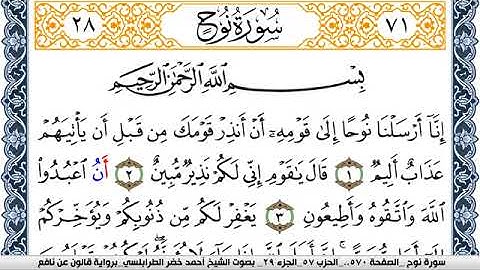 ٧١ سُورَةُ نُوحٍ ٢٨
بِسْمِ اللَّهِ الرَّحْمَٰنِ الرَّحِيمِ
إِنَّا أَرْسَلْنَا نُوحًا إِلَىٰ قَوْمِهِۦ أَنْ أَنذِرْ قَوْمَكَ مِن قَبْلِ أَن يَأْتِيَهُمْ
عَذَابٌ أَلِيمٌ ١ قَالَ يَٰقَوْمِ إِنِّي لَكُمْ نَذِيرٌ مُّبِينٌ ٢ أَنُ اعْبُدُوا
اللَّهَ وَاتَّقُوهُ وَأَطِيعُونِ ٣ يَغْفِرْ لَكُم مِّن ذُنُوبِكُمْ وَيُؤَخِّرْكُمْ
سورة نوح _الصفحة ٥٧٠_ .الحزب ٥٧_الجزء ٢٩_ بصوت الشيخ أحمد خضر الطرابلسي _برواية قالون عن نافع